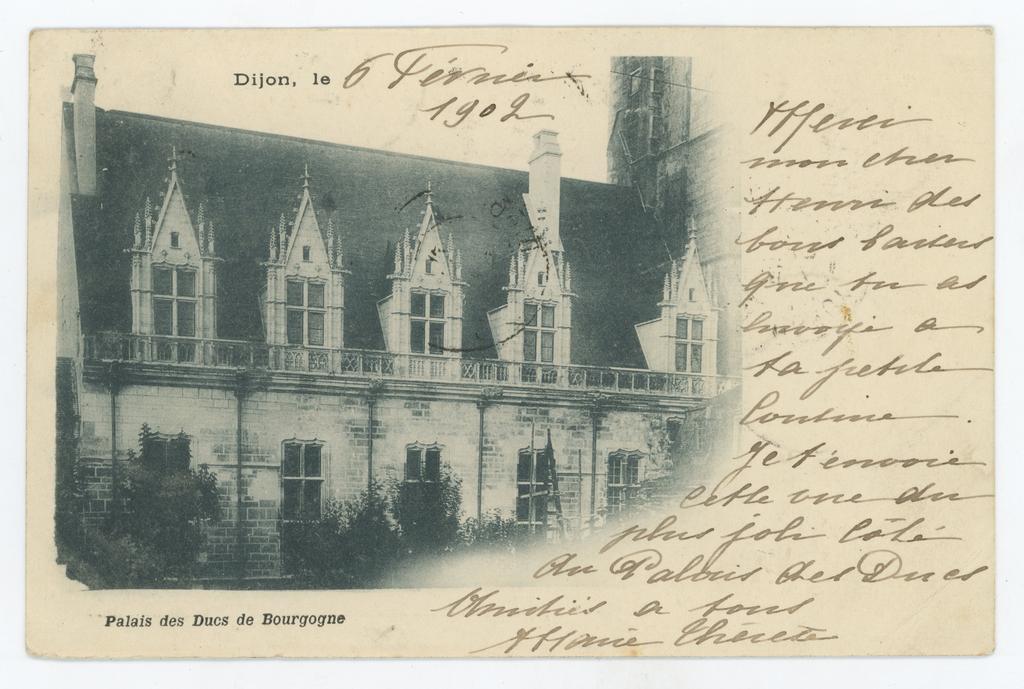 Dijon, le 6 Février
1902
Merci
mon cher
Henri des
bons baisers
que tu as
envoyé a
ta petite
Cousine
Je t'envoie
cette vue du
plus joli côté
du Palais des Ducs
Amitiés a tous
Marie Thérèse
Palais des Ducs de Bourgogne